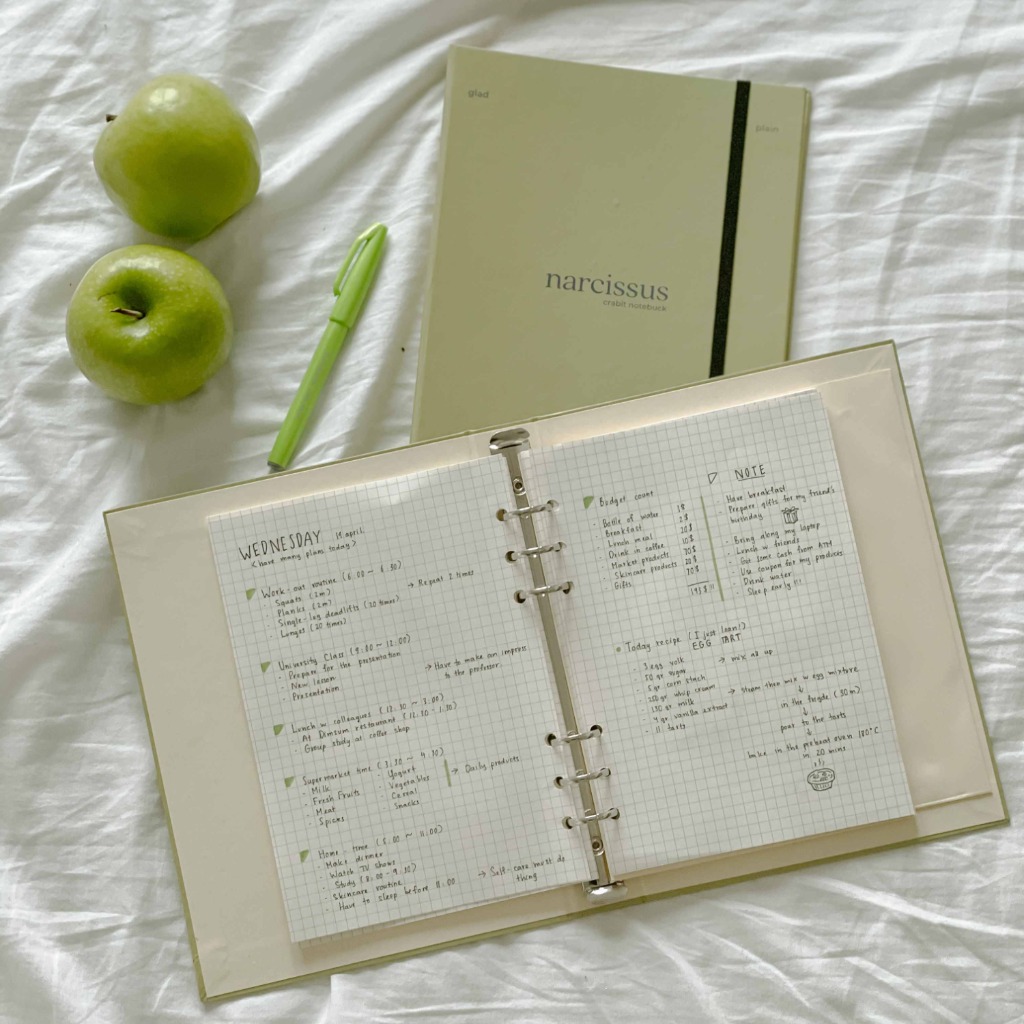 glad
plain
narcissus
crabit notebuck
WEDNESDAY 14 april
(have many plans today)
Work-out routine (6.00 ~ 6.30)
· Squats (2m)
· Planks (2m)
· Single-leg deadlifts (20 times)
· Lunges (20 times)
→ Repeat 2 times
University Class (9.00 ~ 12.00)
· Prepare for the presentation
· New lesson
· Presentation
→ Have to make an impress
to the professor
Lunch w. colleagues (12.30 ~ 3.00)
· At Dimsum restaurant (12.30 - 1.30)
· Group study at coffee shop
Supermarket time (3.30 ~ 4.30)
· Milk
· Fresh Fruits
· Meat
· Spices
· Yogurt
· Vegetables
· Cereal
· Snacks
→ Daily products
Home time (5.00 ~ 11.00)
· Make dinner
· Watch TV shows
· Study (8:00 - 9:30)
· Skincare routine
· Have to sleep before 11.00
→ Self-care must do
thing
Budget count
· Bottle of water 1$
· Breakfast 2$
· Lunch meal 20$
· Drink in coffee 10$
· Market products 70$
· Skincare products 20$
· Gifts 70$
193$!!
NOTE
· Have breakfast
· Prepare gifts for my friend's
birthday
· Bring along my laptop
· Lunch w friends
· Got some cash from ATM
· Use coupon for my products
· Drink water
· Sleep early!!!
Today recipe (I just lean!)
EGG TART
· 3 egg yolk
· 50 gr sugar
· 5 gr corn stach
· 150 gr milk
· 11 tarts
→ mix all up
· whip cream → Steam then mix w egg mixture
· vanilla extract
in the fregde (30m)
pour to the tarts
bake in the preheat oven 180°C
in 20 mins